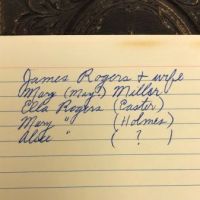 James Rogers + wife
Mary (May?) Millar
Ella Rogers (Caster)
Mary " (Holmes)
Alice " ( ? )